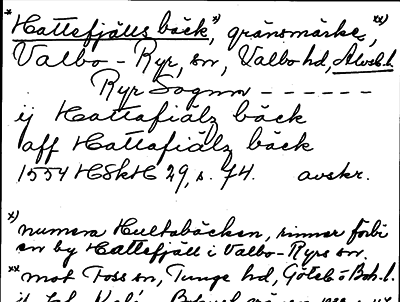 * Hattefjälls bäck, *) gränsmärke, **)
Valbo-Ryr, sn, Valbo hd, Älvsb. l.
Ryr Sognn ------
ij Hattafiälz bäck
aff Hattafiälz bäck
1554 HSkH 29, s. 74. avskr.
*) numera Hultabäcken, rinner förbi
en by Hattefjäll i Valbo-Ryrs sn.
** mot Foss sn, Tunge hd, Göteb. o Boh. l.